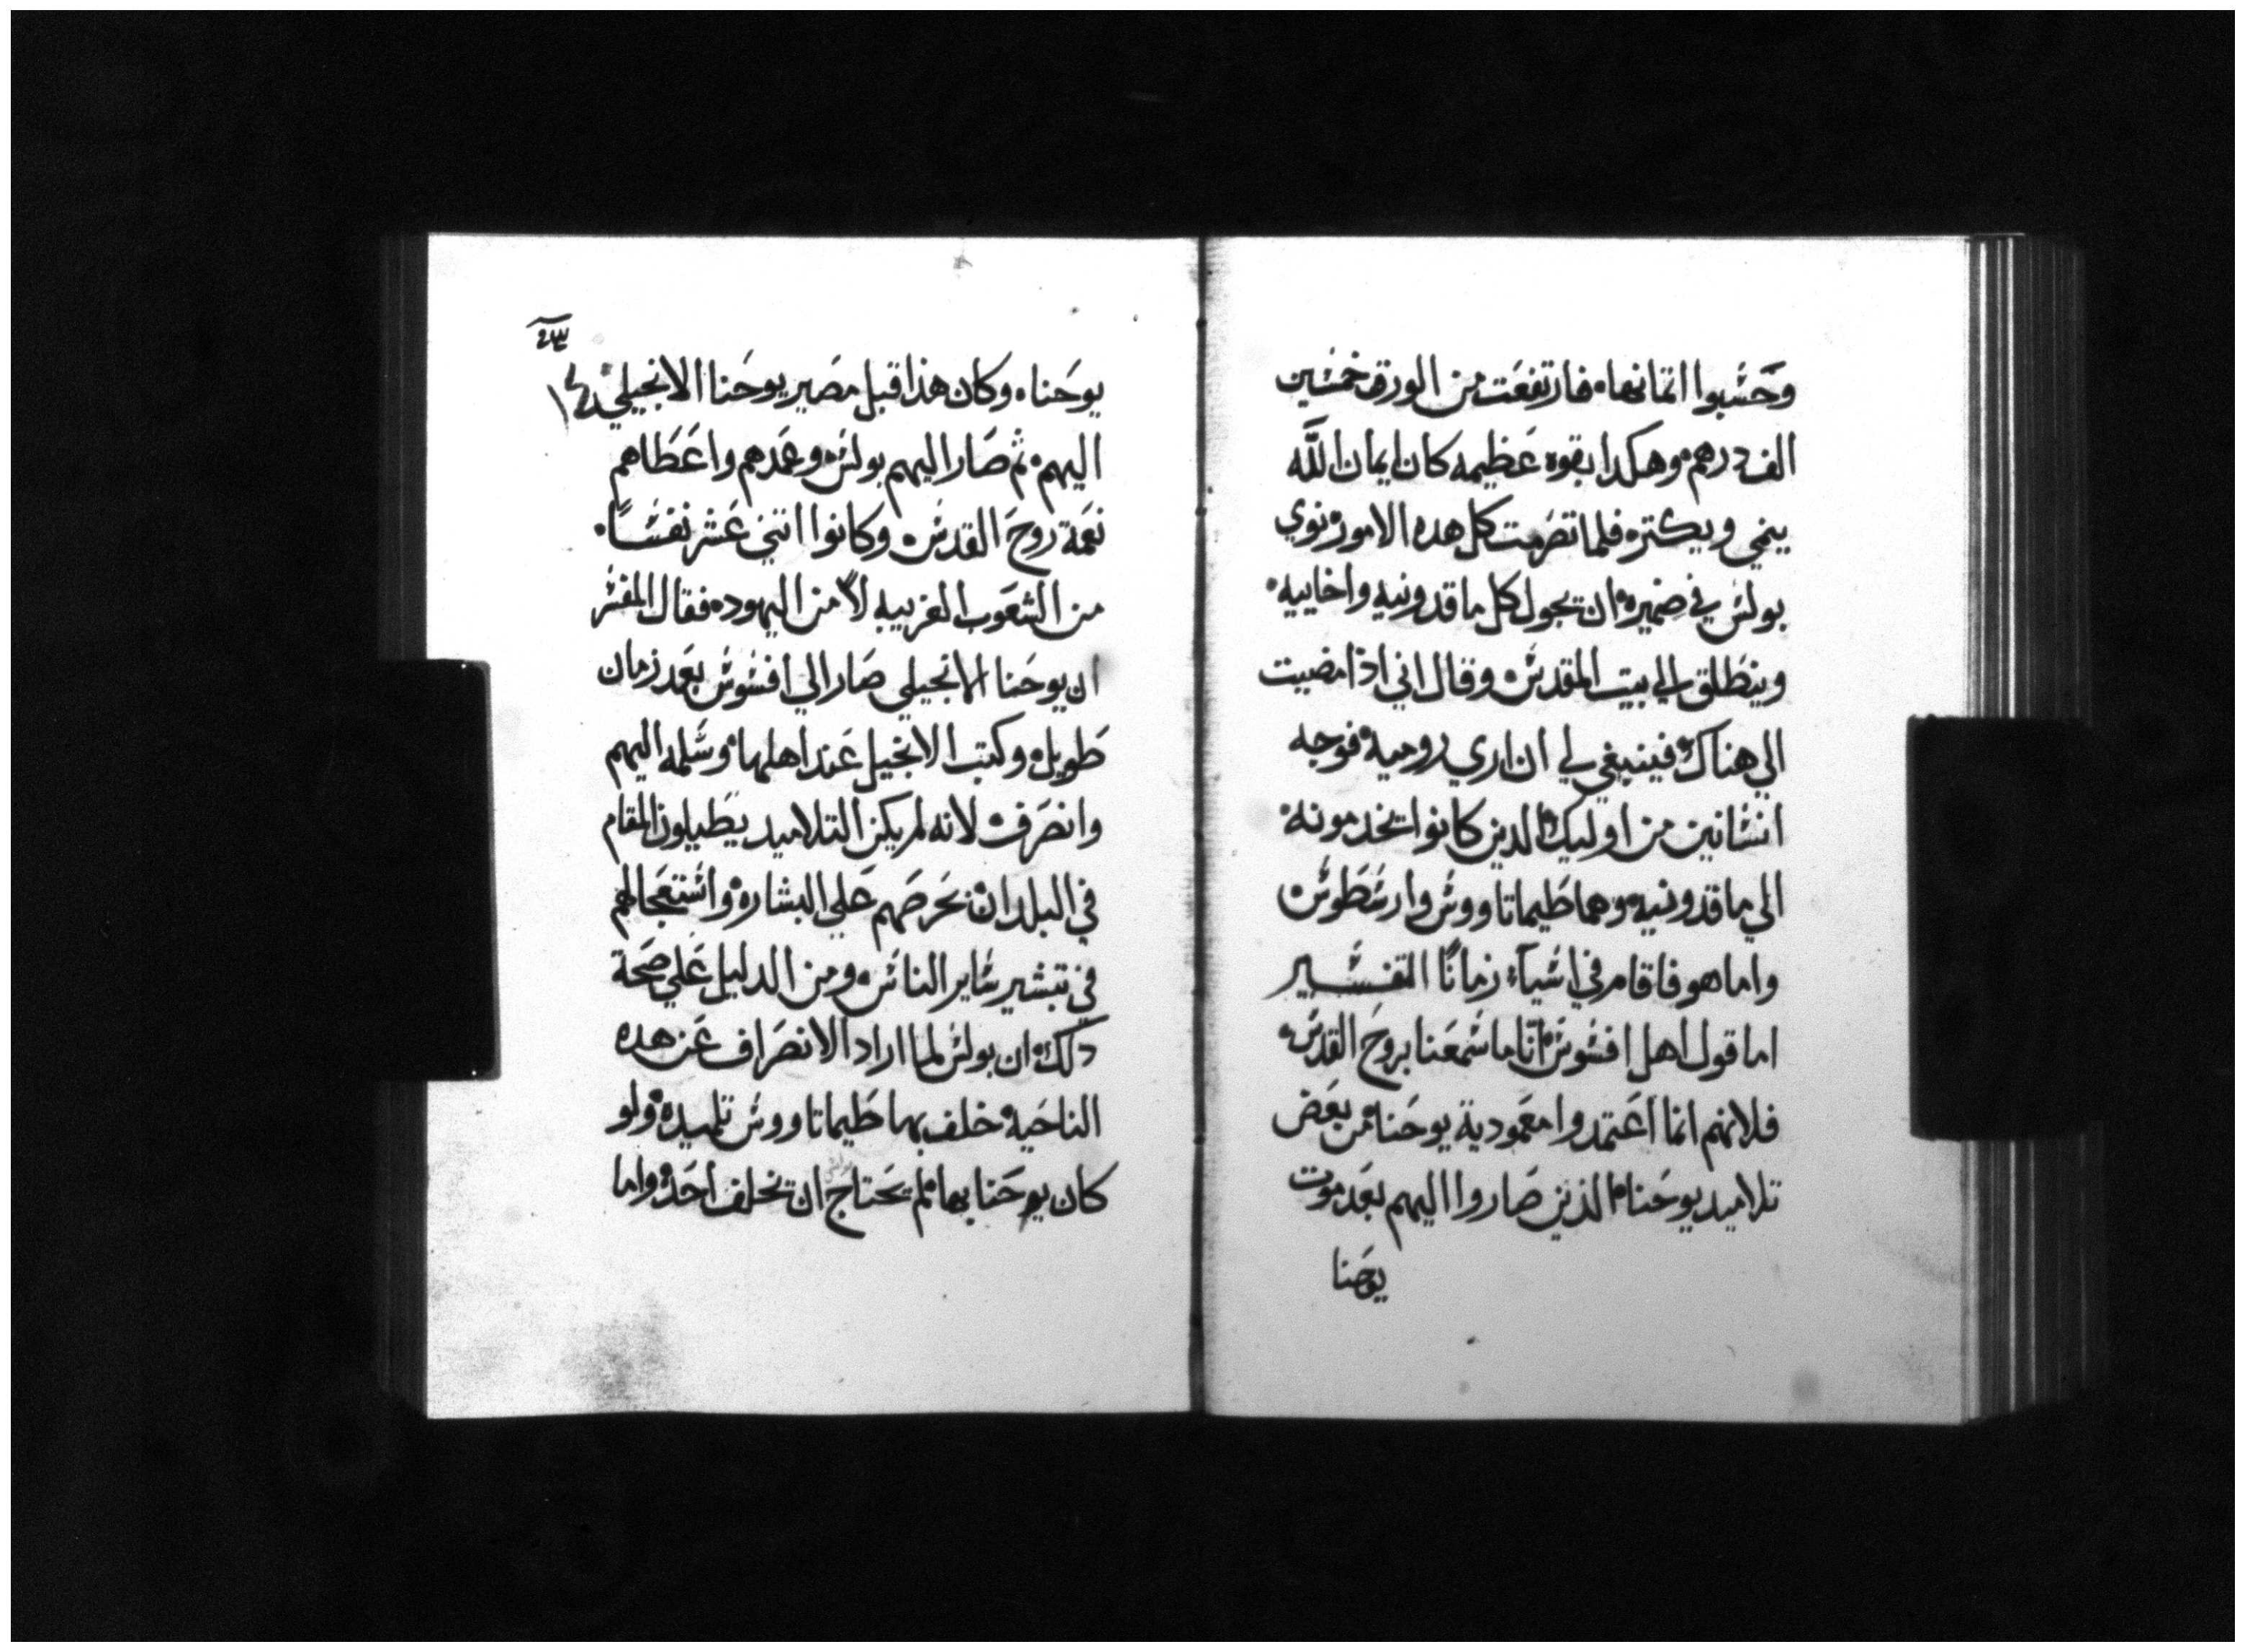 وحسبوا اتمانها، فارتفعت من الورق خمسين
الف درهم، وهكدا بقوه عظيمه كان ايمان الله
ينمي ويكتر، فلما تصرمت كل هده الامور، نوي
بولس في ضميره، ان يجول كل ماقدونيه واخاييه،
وينطلق الي بيت المقدس، وقال اني اذا مضيت
الي هناك، فينبغي لي ان اري روميه، فوجه
انسانين من اوليك، الدين كانوا يخدمونه،
الي ماقدونيه، وهما طيماتاووس وارسطوس،
واما هو فاقام في اسيآء زمانًا التفسير
اما قول اهل افسوس، انّا ما سمعنا بروح القدس،
فلانهم انما اعتمدوا معمودية يوحنا، من بعض
تلاميد يوحنا، الذين صاروا اليهم بعد موت
يوحنا
يوحنا، وكان هذا قبل مصير يوحنا الانجيلي،
اليهم، ثم صار اليهم بولس، وعمدهم واعطاهم
نعمة روح القدس، وكانوا اتني عشر نفسًا،
من الشعوب الغريبه لا من اليهود، فقال المفسر
ان يوحنا الانجيلي صار الي افسوس بعد زمان
طويل، وكتب الانجيل عند اهلها، وسلمه اليهم
وانصرف، لانه لم يكن التلاميد يطيلون المقام
في البلدان، لحرصهم علي البشاره، واستعجالهم
في تبشير ساير الناس، ومن الدليل علي صحة
دلك، ان بولس لما اراد الانصراف عن هده
الناحية، خلف بها طيماتاووس تلميده، ولو
كان يوحنا بها، لم يحتاج ان يخلف احد، واما